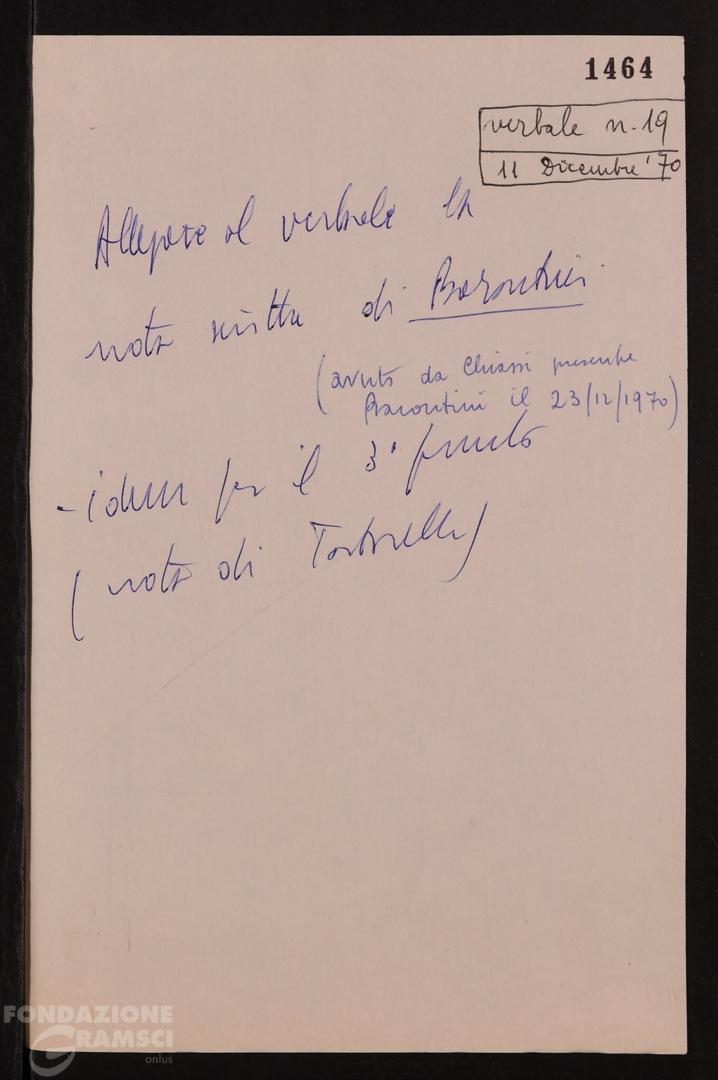 1464
verbale n. 19
11 Dicembre '70
Allegare al verbale la
nota scritta di Barontini
(avuto da Chiassi presente
Barontini il 23/12/1970)
- idem per il 3° punto
(nota di Tortorella)
FONDAZIONE
GRAMSCI
onlus